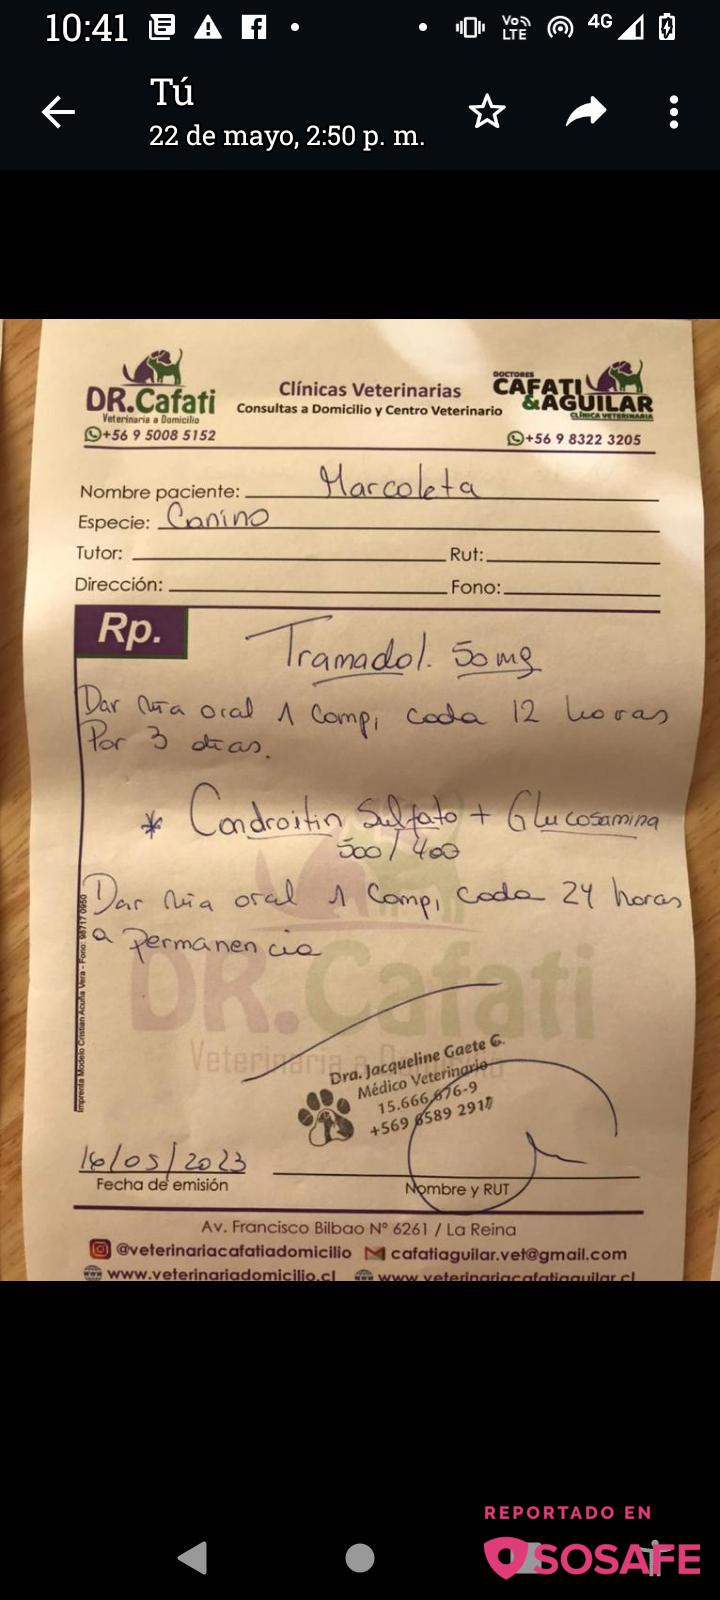 10:41
Vo
LTE
4G
Tú
22 de mayo, 2:50 p. m.
DR.Cafati
Veterinaria a Domicilio
+56 9 5008 5152
Clínicas Veterinarias
Consultas a Domicilio y Centro Veterinario
DOCTORES
CAFATI
&AGUILAR
CLÍNICA VETERINARIA
+56 9 8322 3205
Nombre paciente: Marcoleta
Especie: Canino
Tutor: Rut:
Dirección: Fono:
Rp.
Tramadol. 50 mg
Dar vía oral 1 comp, cada 12 horas
Por 3 días.
* Condroitin Sulfato + Glucosamina
500/400
Dar vía oral 1 comp, cada 24 horas
a permanencia
DR.Cafati
Veterinaria a
Imprenta Modelo Cristian Acuña Vera - Fono: 98717 0950
Dra. Jacqueline Gaete G.
Médico Veterinario
15.666.676-9
+569 6589 2917
16/05/2023
Fecha de emisión
Nombre y RUT
Av. Francisco Bilbao N° 6261 / La Reina
@veterinariacafatiadomicilio cafatiaguilar.vet@gmail.com
www.veterinariadomicilio.cl www.veterinariacafatiaguilar.cl
REPORTADO EN
SOSAFE